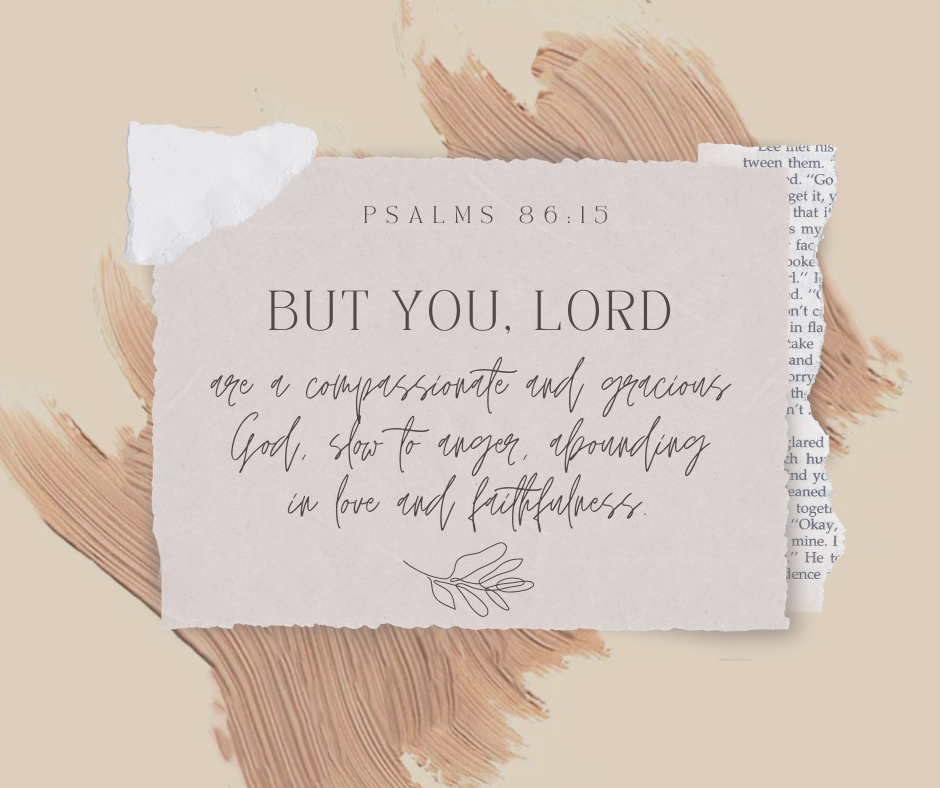 PSALMS 86:15
BUT YOU, LORD
are a compassionate and gracious
God, slow to anger, abounding
in love and faithfulness.
Lee met his
tween them.
ed. "Go
get it, y
that i
s my
fac
poke
rl." I
ed. "
on't c
in fla
take
and
orry
th
n't
clared
ch hu
and yo
eaned
togeth
"Okay,
mine. I
" He to
dence